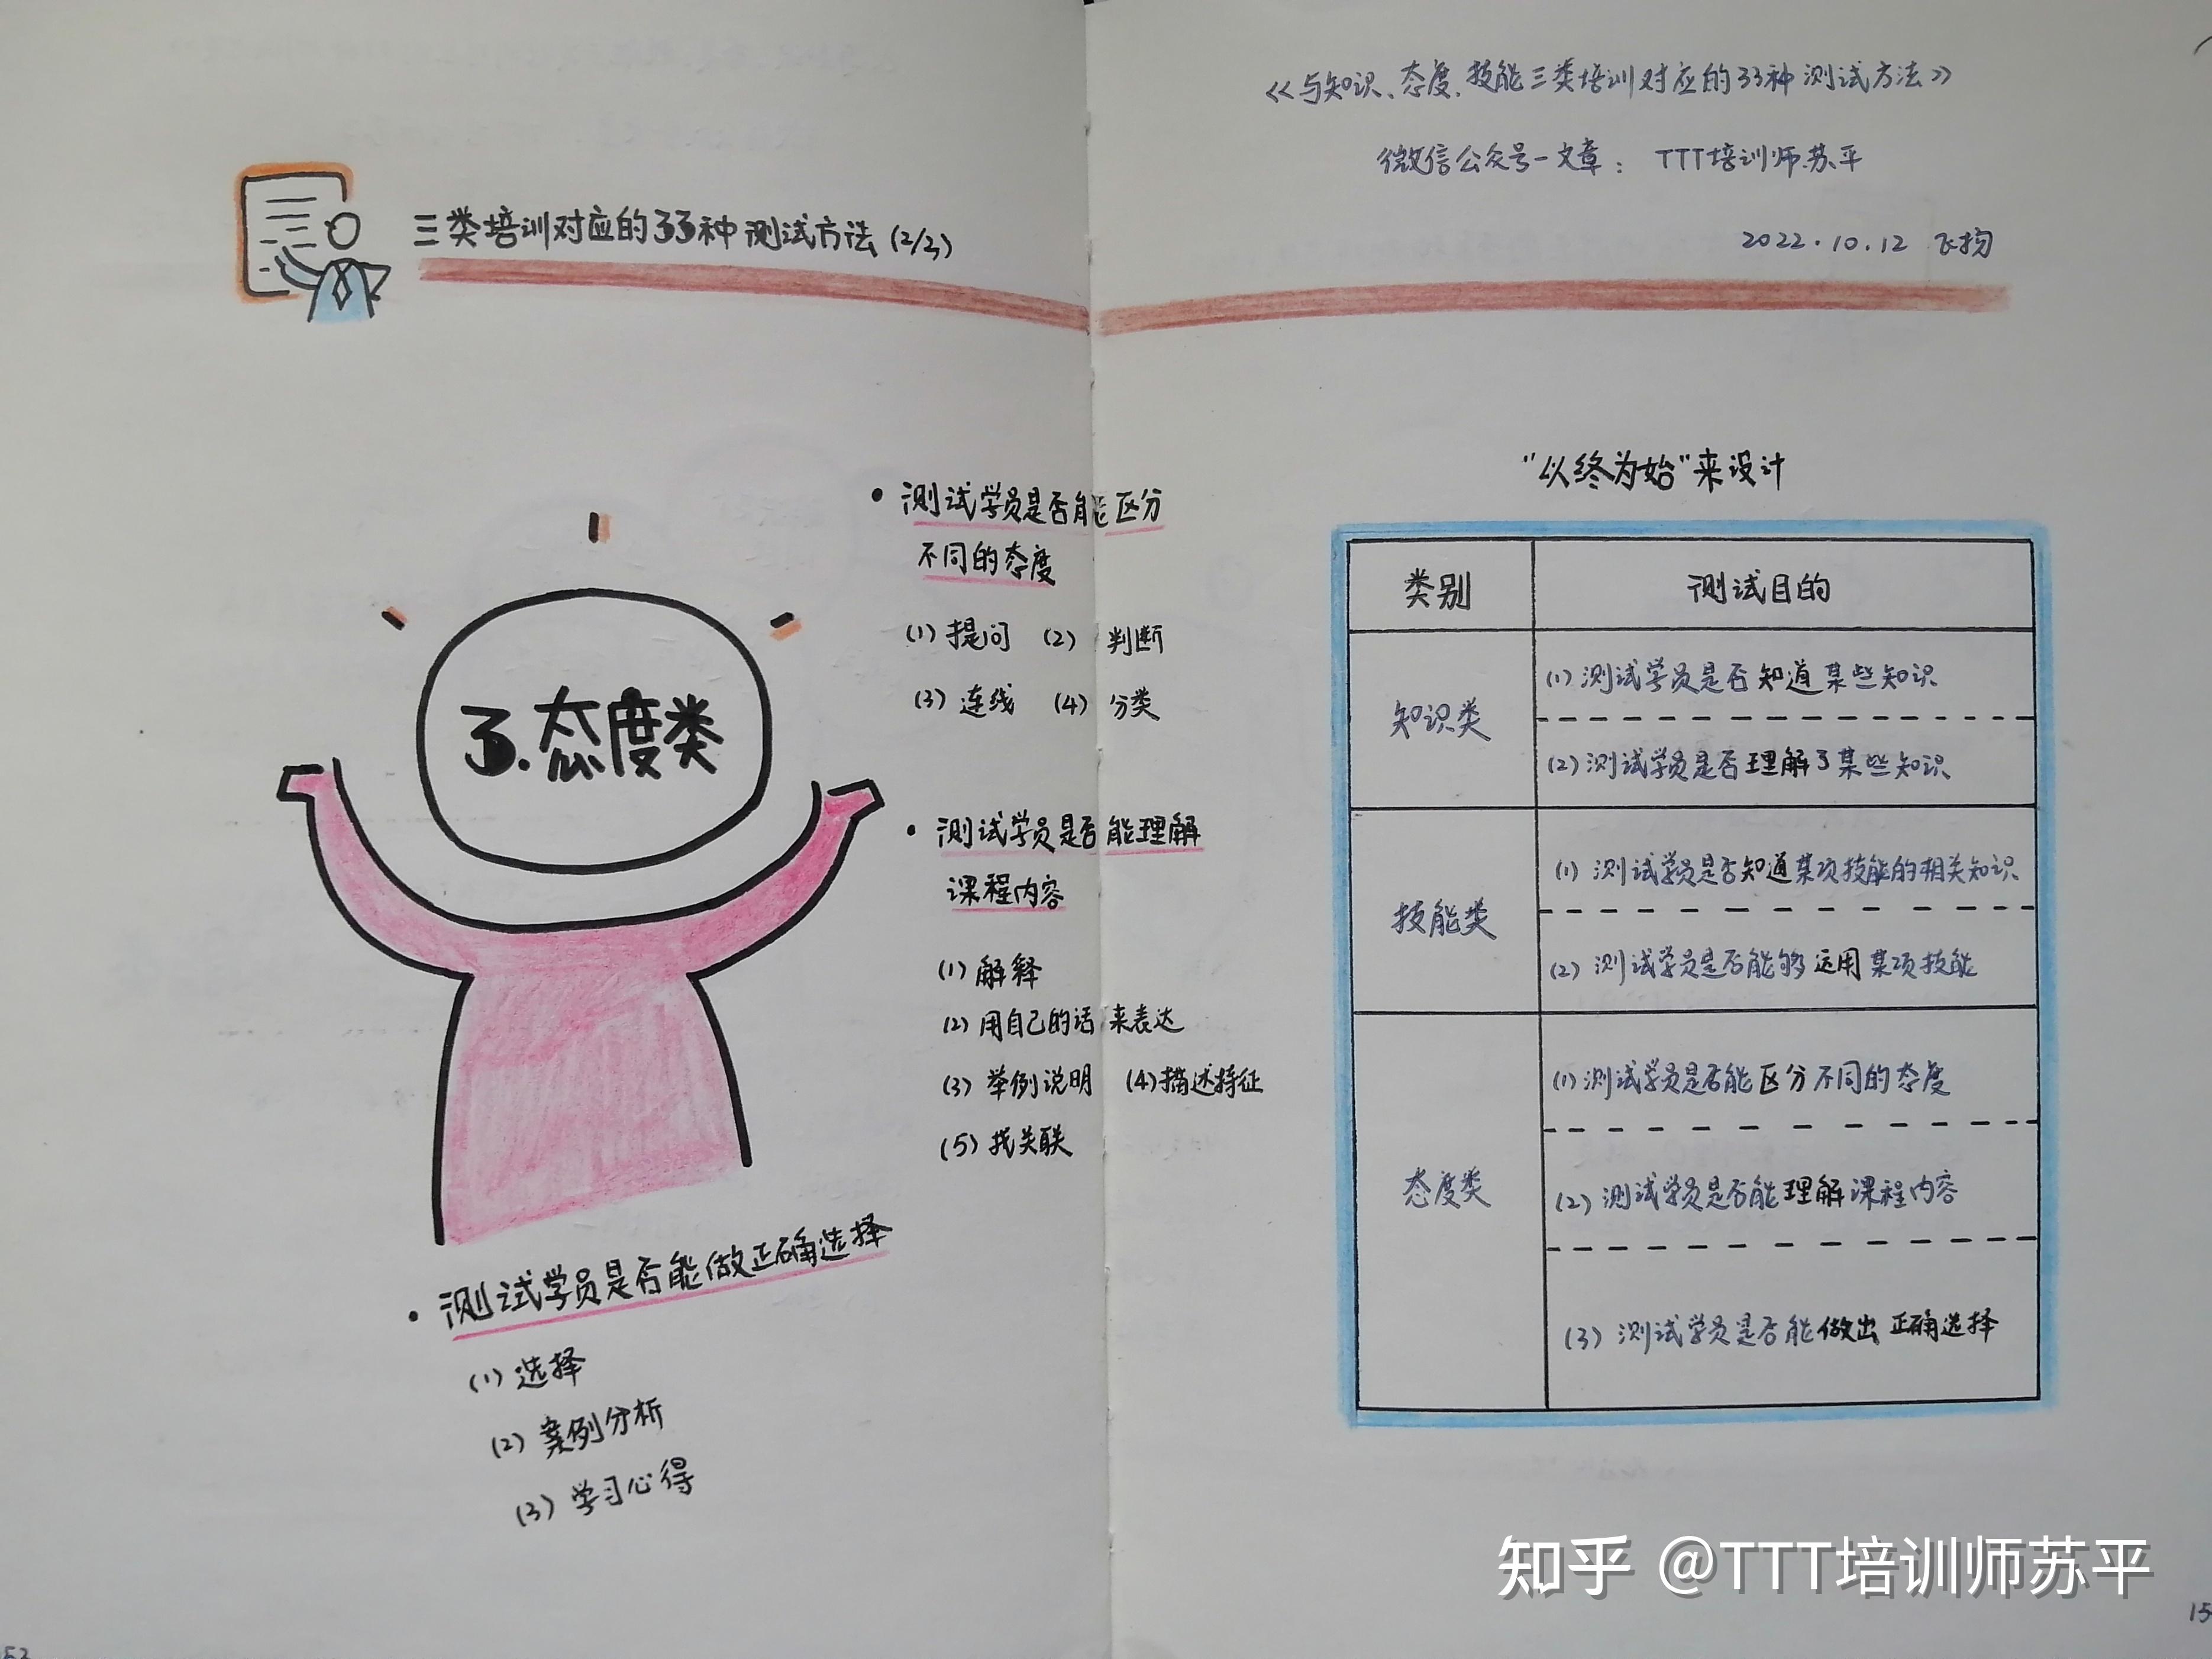 三类培训对应的33种测试方法(2/2)
3.态度类
• 测试学员是否能区分
不同的态度
(1) 提问 (2) 判断
(3) 连线 (4) 分类
• 测试学员是否能理解
课程内容
(1) 解释
(2) 用自己的话来表达
(3) 举例说明 (4)描述特征
(5) 找关联
• 测试学员是否能做正确选择
(1) 选择
(2) 案例分析
(3) 学习心得
《与知识、态度、技能三类培训对应的33种测试方法》
微信公众号-文章： TTT培训师.苏平
2022.10.12 飞扬
“以终为始”来设计
类别 测试目的
知识类
(1) 测试学员是否知道某些知识
(2) 测试学员是否理解了某些知识
技能类
(1) 测试学员是否知道某项技能的相关知识
(2) 测试学员是否能够运用某项技能
态度类
(1) 测试学员是否能区分不同的态度
(2) 测试学员是否能理解课程内容
(3) 测试学员是否能做出正确选择
知乎 @TTT培训师苏平